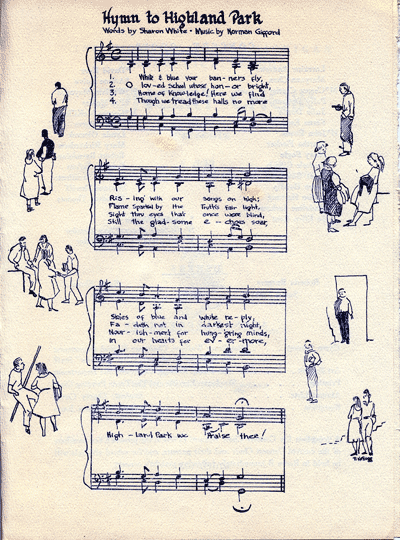 Hymn to Highland Park
Words by Sharon White • Music by Norman Gifford
1. White & blue your ban-ners fly,
2. O lov-ed school whose hon-or bright,
3. Home of knowledge! Here we find
4. Though we tread these halls no more
Ris-ing with our songs on high;
Flame sparked by the Truth's fair light,
Sight thru eyes that once were blind,
Still the glad-some e-choes soar,
Skies of blue and white re-ply,
Fa-deth not in darkest night,
Nour-ish-ment for hung-ering minds,
In our hearts for ev-er-more,
High-land Park we Praise thee!